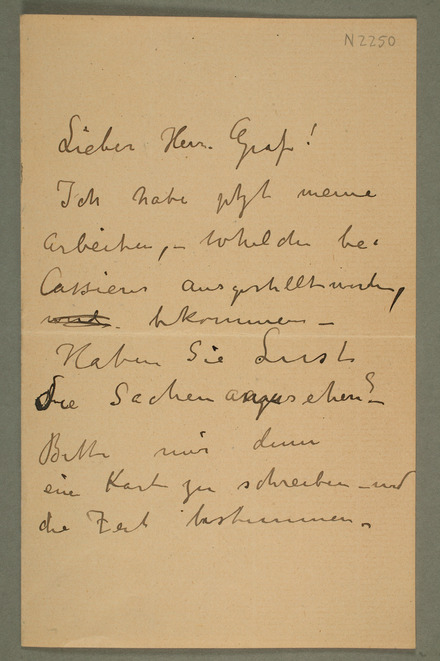 N2250
Lieber Herr Graf!
Ich habe jetzt meine
Arbeiten, – welche bei
Cassierer ausgestellt wurden,
bekommen –
Haben Sie Lust
die Sachen anzusehen? –
Bitte mir dann
eine Kart zu schreiben – und
die Zeit bestimmen.